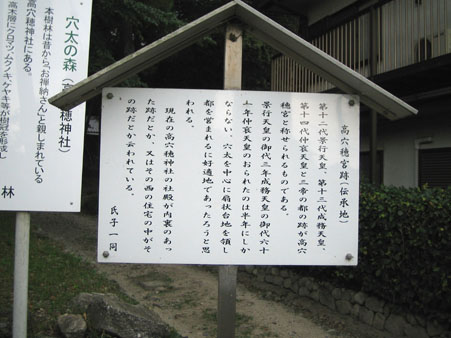 高穴穂宮跡(伝承地)
第十二代景行天皇、第十三代成務天皇、
第十四代仲哀天皇と三帝の都の跡が高穴
穂宮と称せられるものである。
景行天皇の御代三年成務天皇の御代六十
一年仲哀天皇のおられたのは半年にしか
ならない、穴太を中心に扇状台地を領し
都を営まれるに好適地であったろうと思
われる。
現在の高穴穂神社の社殿が内裏のあっ
た跡だとか、又はその西の住宅の中がそ
の跡だとか云われている。
氏子一同
穴太の森(高穴穂神社)
本樹林は昔から“お禅納さん”と親しまれている
高穴穂神社にある。
高木層にクロマツ、ムクノキ、ケヤキ等が樹冠を形成し
林